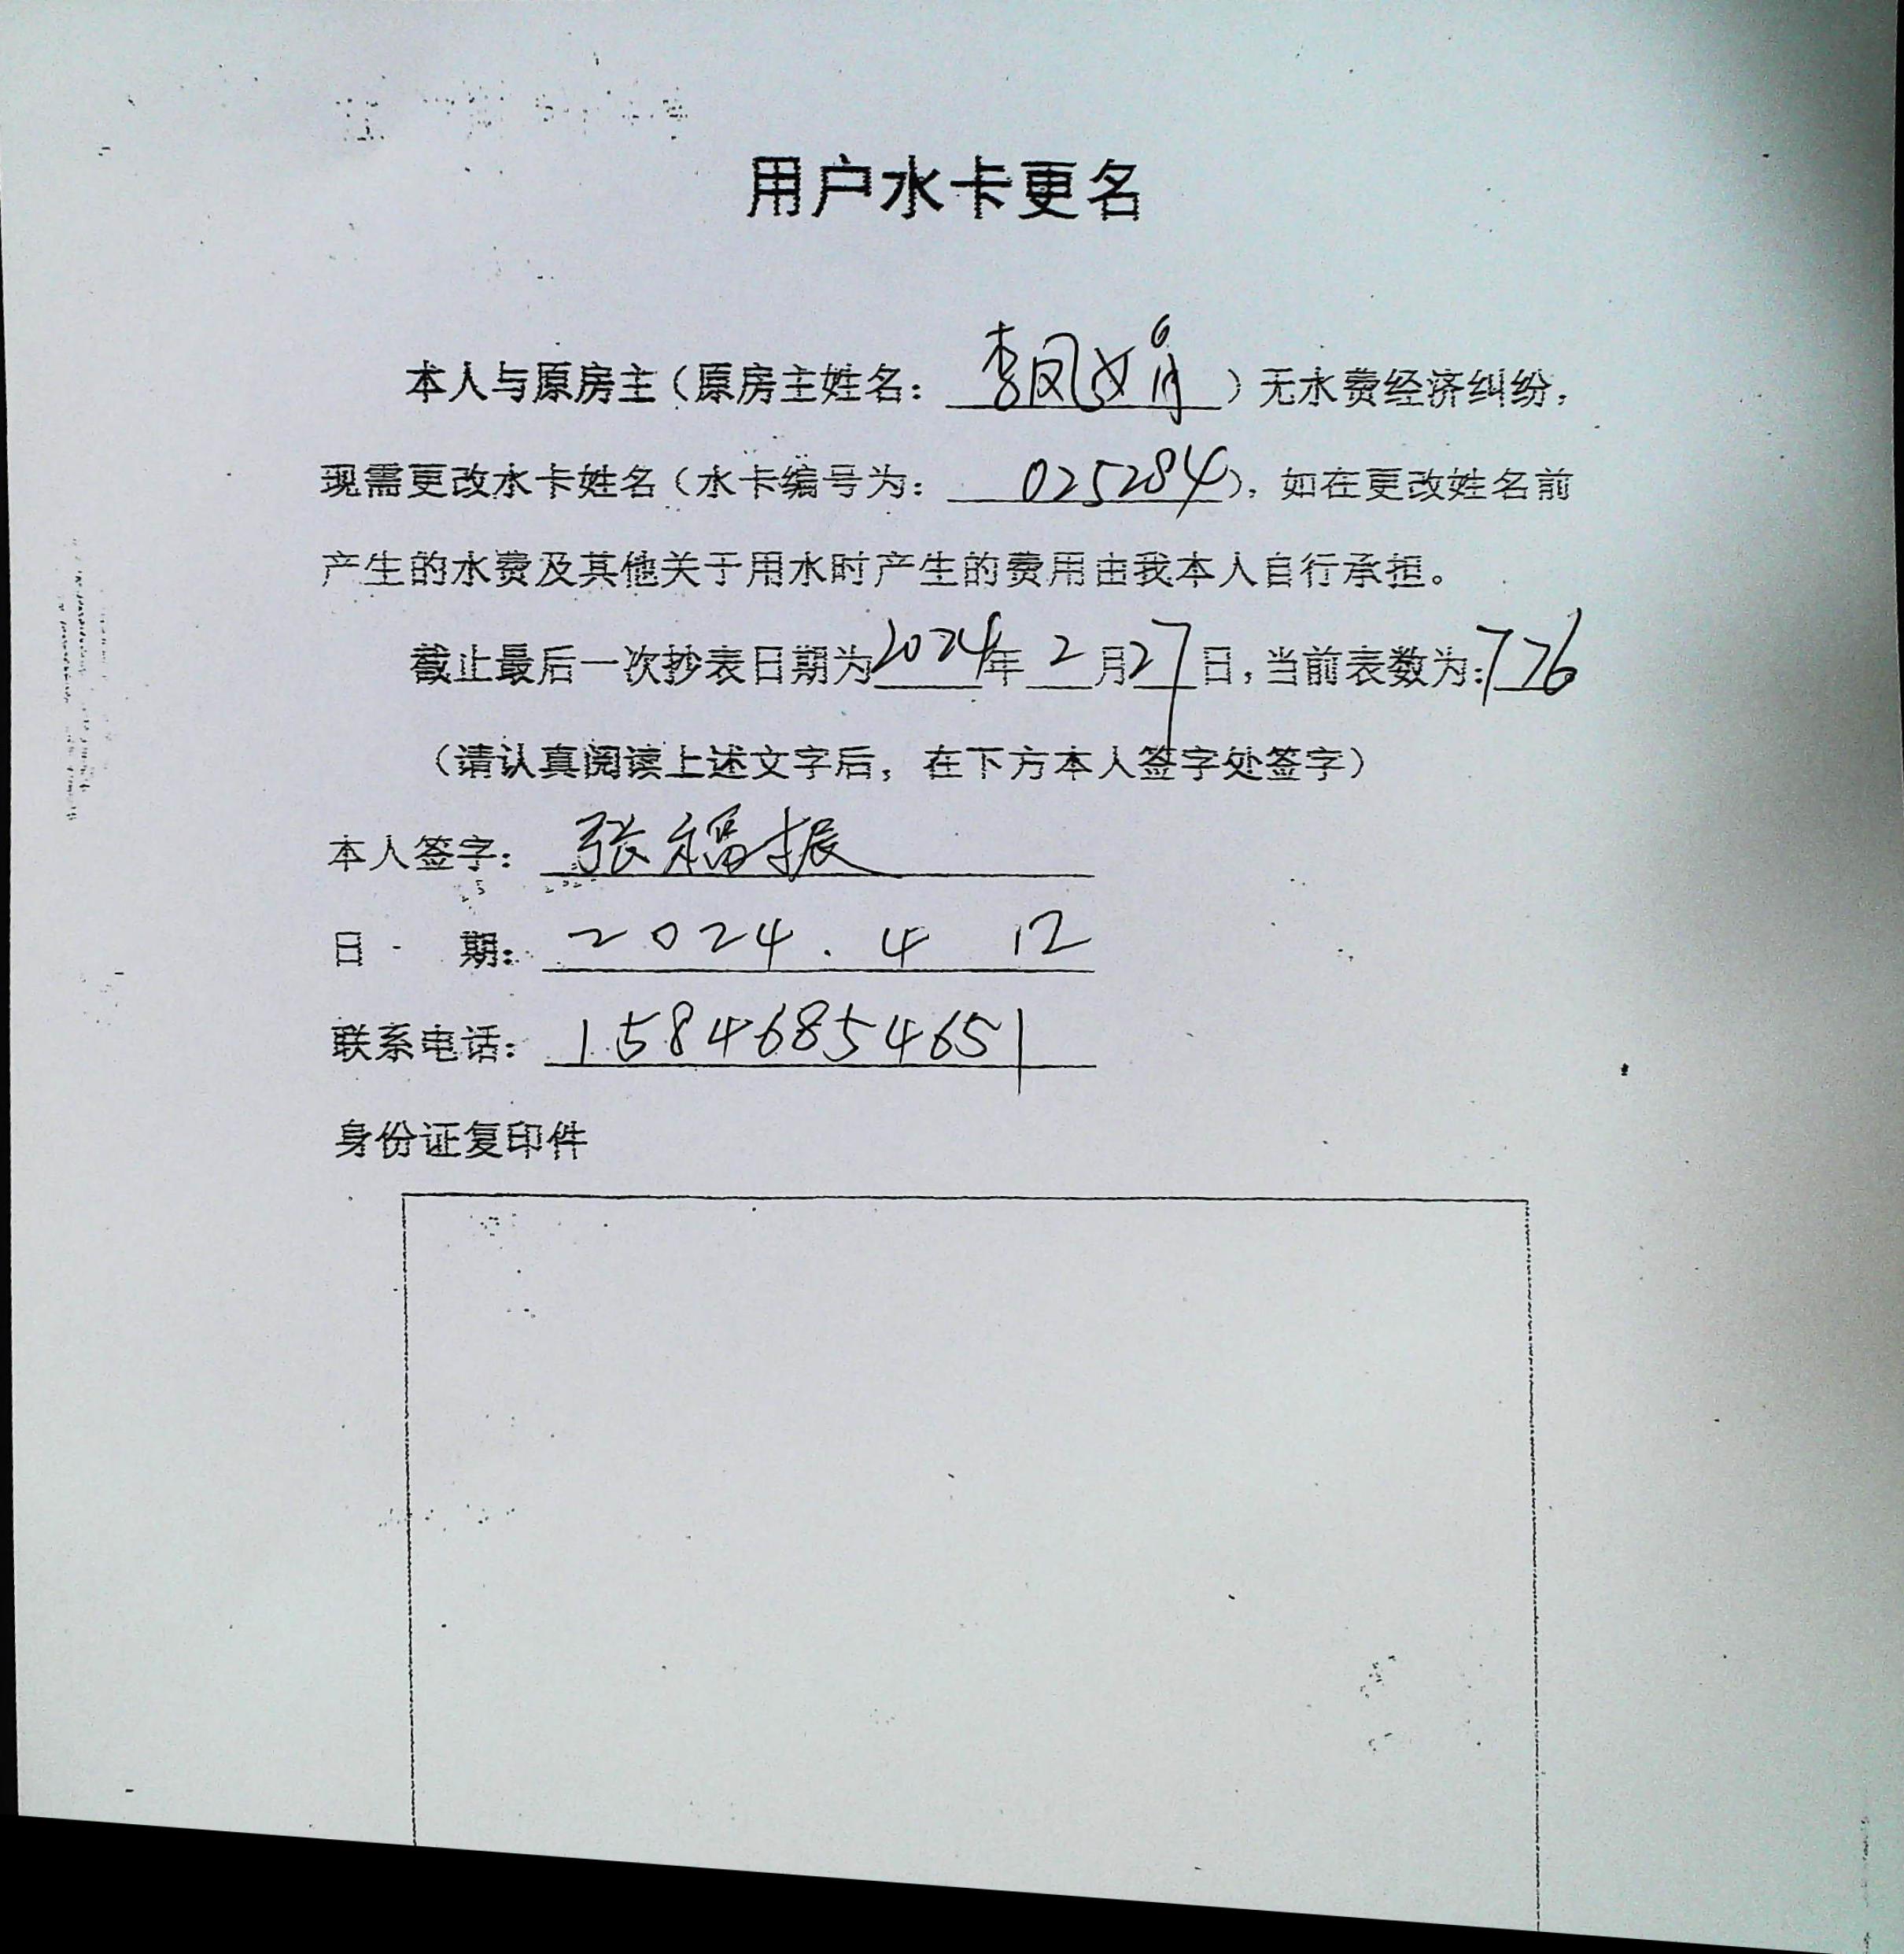 用户水卡更名
本人与原房主（原房主姓名：李凤娟）无水费经济纠纷，
现需更改水卡姓名（水卡编号为：025284），如在更改姓名前
产生的水费及其他关于用水时产生的费用由我本人自行承担。
截止最后一次抄表日期为2024年2月27日，当前表数为：776
（请认真阅读上述文字后，在下方本人签字处签字）
本人签字：张福振
日期：2024.4 12
联系电话：15846854651
身份证复印件